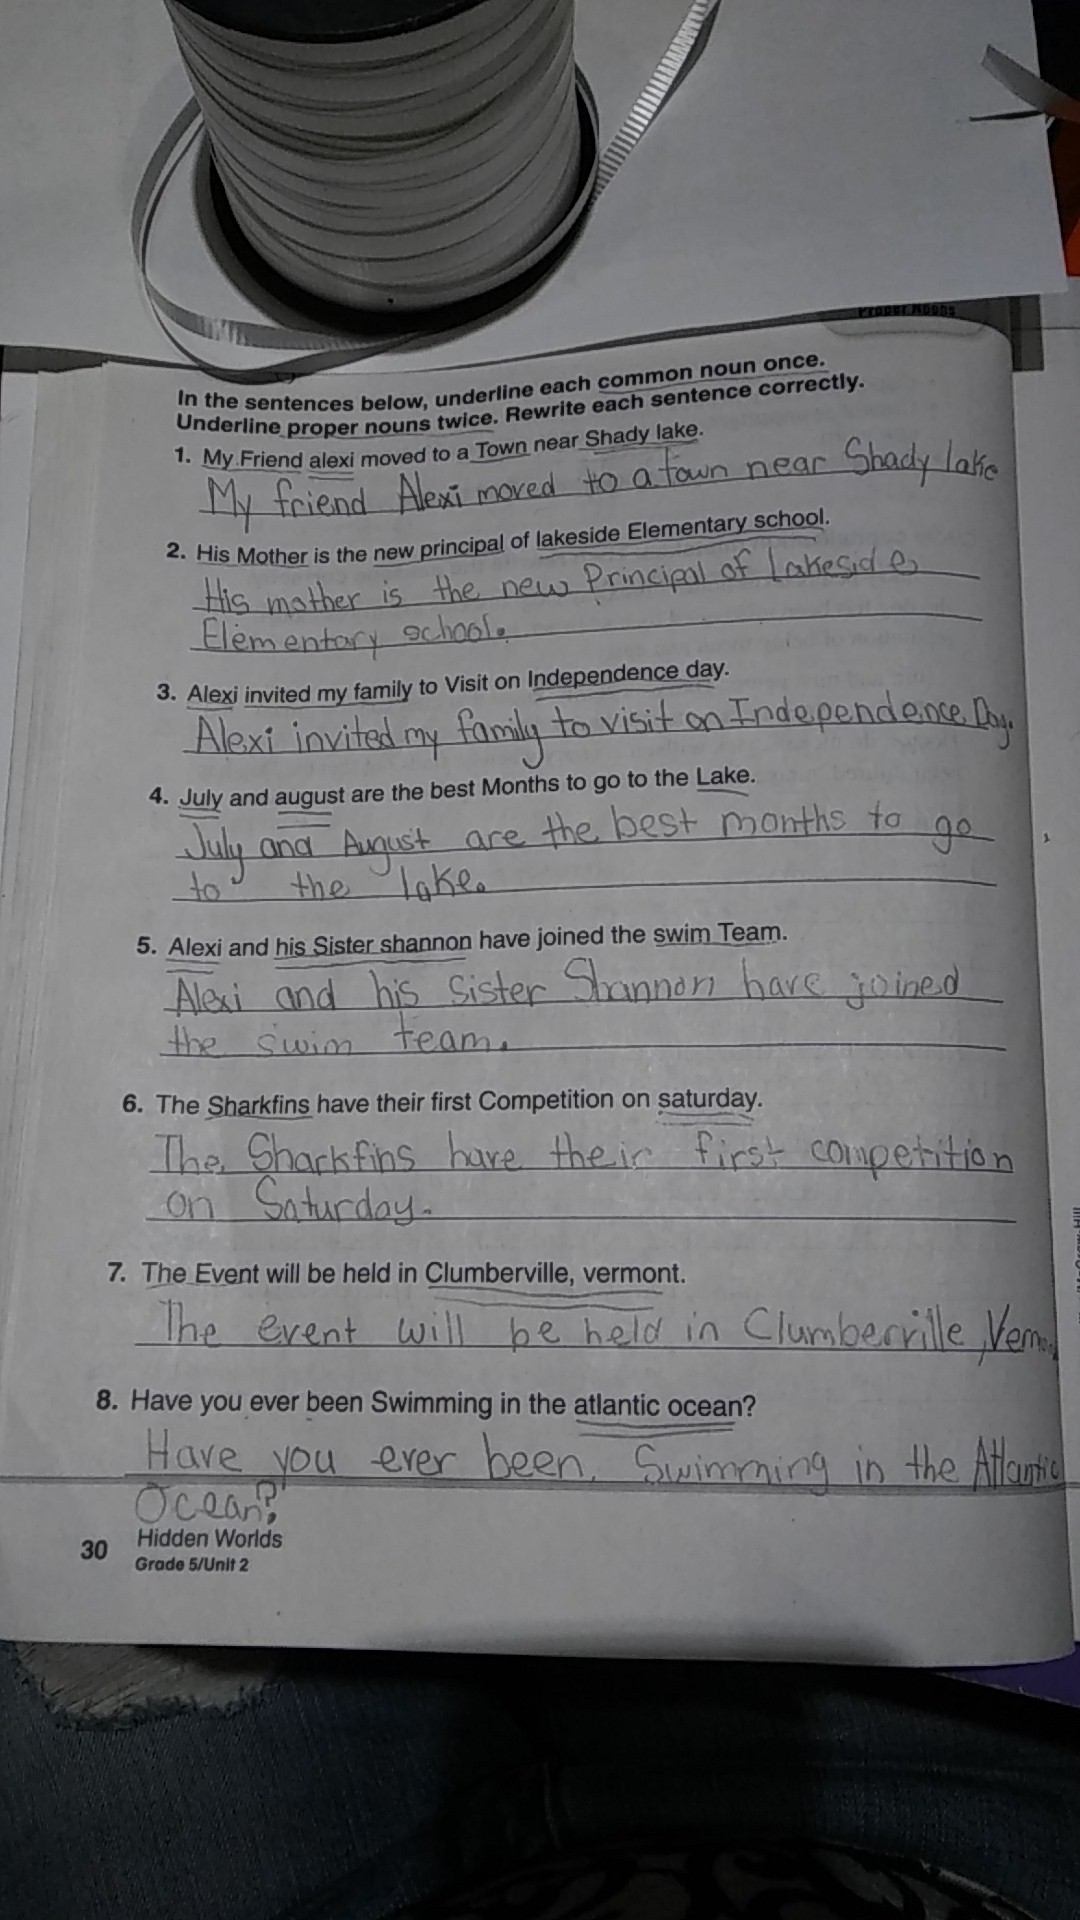 Proper Nouns
In the sentences below, underline each common noun once.
Underline proper nouns twice. Rewrite each sentence correctly.
1. My Friend alexi moved to a Town near Shady lake.
My friend Alexi moved to a town near Shady lake
2. His Mother is the new principal of lakeside Elementary school.
His mother is the new Principal of Lakeside
Elementary school.
3. Alexi invited my family to Visit on Independence day.
Alexi invited my family to visit on Independence Day.
4. July and august are the best Months to go to the Lake.
July and August are the best months to go
to the lake.
5. Alexi and his Sister shannon have joined the swim Team.
Alexi and his Sister Shannon have joined
the swim team.
6. The Sharkfins have their first Competition on saturday.
The Sharkfins have their first competition
on Saturday.
7. The Event will be held in Clumberville, vermont.
The event will be held in Clumberville,
8. Have you ever been Swimming in the atlantic ocean?
Have you ever been Swimming in the Atlantic
Ocean?
30
Hidden Worlds
Grade 5/Unit 2